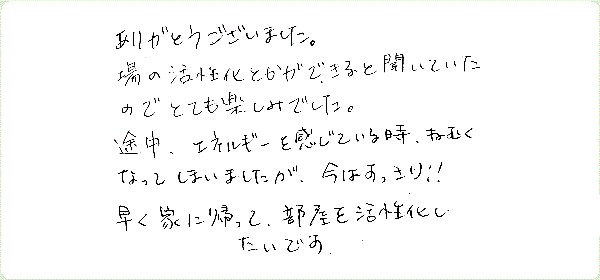 ありがとうございました。
場の活性化とかができると聞いていた
のでとても楽しみでした。
途中、エネルギーを感じている時、ねむく
なってしまいましたが、今はすっきり!!
早く家に帰って、部屋を活性化し
たいです。